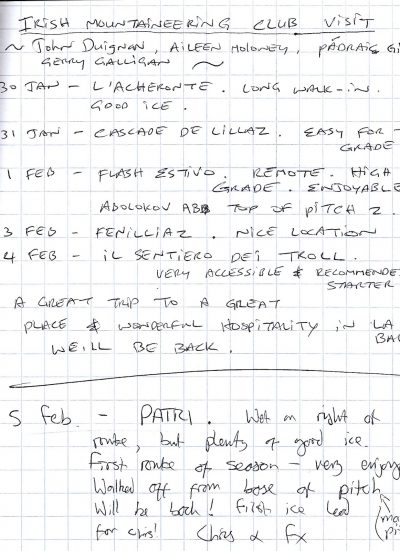 IRISH MOUNTAINEERING CLUB VISIT
~ JOHN DUIGNAN, AILEEN MOLONEY, PÁDRAIG
GERRY GALLIGAN ~
30 JAN - L'ACHERONTE. LONG WALK-IN.
GOOD ICE.
31 JAN - CASCADE DE LILLAZ. EASY FOR
GRADE
1 FEB - FLASH ESTIVO. REMOTE. HIGH
GRADE. ENJOYABLE
ABOLOKOV ABB TOP OF PITCH 2.
3 FEB - FENILLIAZ. NICE LOCATION
4 FEB - IL SENTIERO DEI TROLL.
VERY ACCESSIBLE & RECOMMENDE
STARTER
A GREAT TRIP TO A GREAT
PLACE & WONDERFUL HOSPITALITY IN LA
BA
WE'LL BE BACK.
5 Feb. - PATRI. Wet on right of
route, but plenty of good ice.
First route of season - very enjoy
Walked off from base of pitch
Will be back! First ice lead
for Chris! Chris & Fx